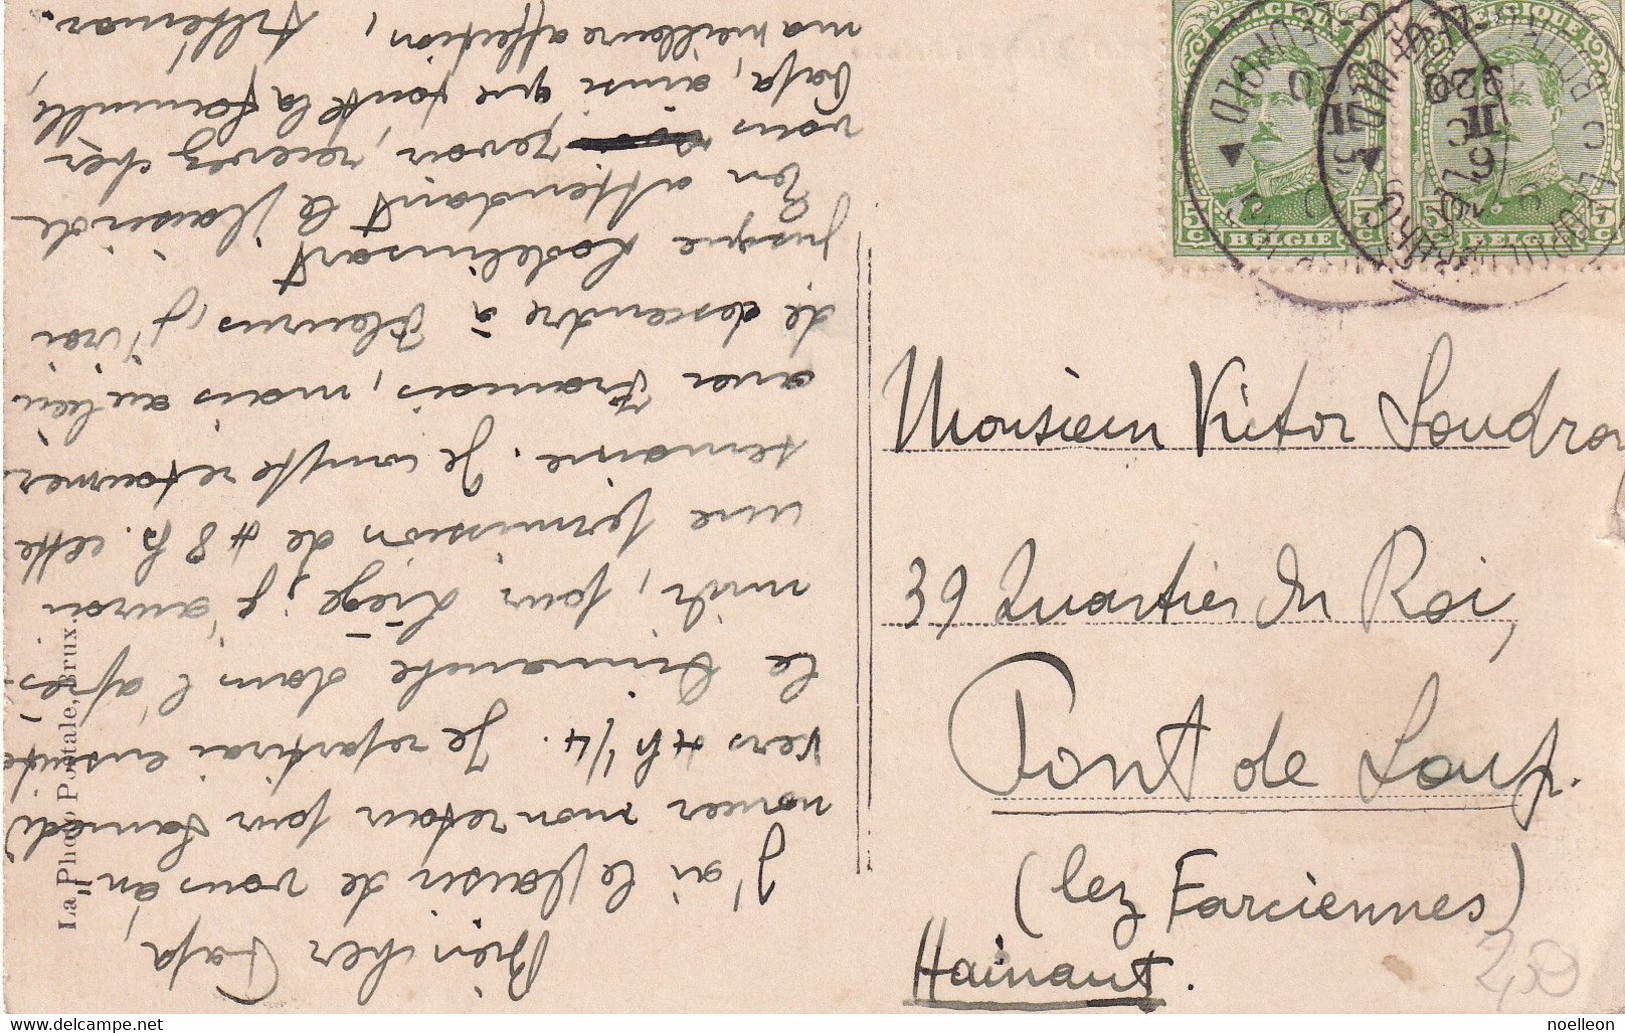 Bien cher Papa,
J'ai le plaisir de vous an-
noncer mon retour pour Samedi
vers 4h 1/4. Je repartirai ensuite
le Dimanche dans l'après-
midi, pour Liège; j'aurai
une permission de 48 h. cette
semaine. Je compte retourner
avec François, mais au lieu
de descendre à Fleurus, j'irai
jusque Lodelinsart
En attendant le plaisir de
vous revoir, recevez cher
Papa, ainsi que toute la famille,
ma meilleure affection,
Monsieur Victor Soudron
39 Quartier du Roi,
Pont de Loup.
(lez Farciennes)
Hainaut.
2,50
La "Photo Postale, Brux.
BELGIQUE
BELGIQUE
5c BELGIE 5c
5c BELGIE 5c
LEOPOLD
1920
noelleon